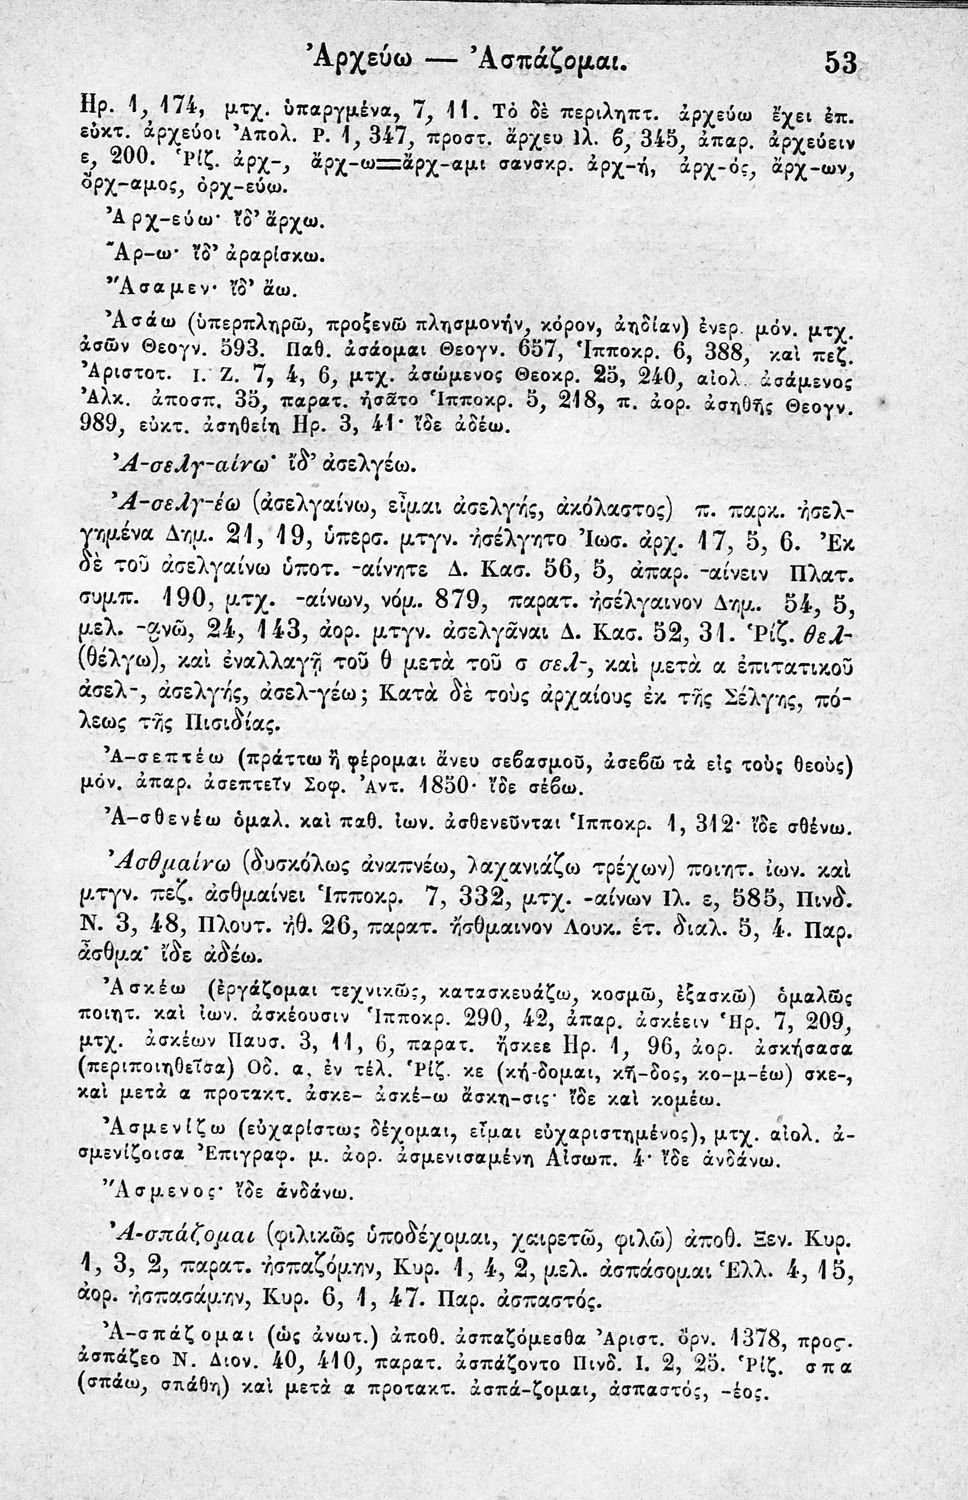 Ἀρχεύω — Ἀσπάζομαι. 53
Ηρ. 1, 174, μτχ. ὑπαργμένα, 7, 11. Τὸ δὲ περιληπτ. ἀρχεύω ἔχει ἐπ.
εὐκτ. ἀρχεύοι Ἀπολ. Ρ. 1, 347, προστ. ἄρχευ Ιλ. 6, 345, ἀπαρ. ἀρχεύειν
ε, 200. Ῥίζ. ἀρχ-, ἄρχ-ω=ἄρχ-αμι σανσκρ. ἀρχ-ή, ἀρχ-ός, ἄρχ-ων,
ὄρχ-αμος, ὀρχ-εύω.
Ἀρχ-εύω· ἴδ' ἄρχω.
Ἄρ-ω· ἴδ' ἀραρίσκω.
Ἄσαμεν· ἴδ' ἄω.
Ἀσάω (ὑπερπληρῶ, προξενῶ πλησμονήν, κόρον, ἀηδίαν) ἐνερ. μόν. μτχ.
ἀσῶν Θεογν. 593. Παθ. ἀσάομαι Θεογν. 657, Ἱπποκρ. 6, 388, καὶ πεζ.
Ἀριστοτ. Ι. Ζ. 7, 4, 6, μτχ. ἀσώμενος Θεοκρ. 25, 240, αἰολ. ἀσάμενος
Ἀλκ. ἀποσπ. 35, παρατ. ἠσᾶτο Ἱπποκρ. 5, 218, π. ἀορ. ἀσηθῆς Θεογν.
989, εὐκτ. ἀσηθείη Ηρ. 3, 41· ἴδε ἀδέω.
Ἀ-σελγ-αίνω· ἴδ' ἀσελγέω.
Ἀ-σελγ-έω (ἀσελγαίνω, εἶμαι ἀσελγής, ἀκόλαστος) π. παρκ. ἠσελ-
γημένα Δημ. 21, 19, ὑπερσ. μτγν. ἠσέλγητο Ἰωσ. ἀρχ. 17, 5, 6. Ἐκ
δὲ τοῦ ἀσελγαίνω ὑποτ. -αίνητε Δ. Κασ. 56, 5, ἀπαρ. -αίνειν Πλατ.
συμπ. 190, μτχ. -αίνων, νόμ. 879, παρατ. ἠσέλγαινον Δημ. 54, 5,
μελ. -ανῶ, 24, 143, ἀορ. μτγν. ἀσελγᾶναι Δ. Κασ. 52, 31. Ῥίζ. θελ-
(θέλγω), καὶ ἐναλλαγῇ τοῦ θ μετὰ τοῦ σ σελ-, καὶ μετὰ α ἐπιτατικοῦ
ἀσελ-, ἀσελγής, ἀσελ-γέω; Κατὰ δὲ τοὺς ἀρχαίους ἐκ τῆς Σέλγης, πό-
λεως τῆς Πισιδίας.
Ἀ-σεπτέω (πράττω ἢ φέρομαι ἄνευ σεβασμοῦ, ἀσεβῶ τὰ εἰς τοὺς θεοὺς)
μόν. ἀπαρ. ἀσεπτεῖν Σοφ. Ἀντ. 1850· ἴδε σέβω.
Ἀ-σθενέω ὁμαλ. καὶ παθ. ἰων. ἀσθενεῦνται Ἱπποκρ. 1, 312· ἴδε σθένω.
Ἀσθμαίνω (δυσκόλως ἀναπνέω, λαχανιάζω τρέχων) ποιητ. ἰων. καὶ
μτγν. πεζ. ἀσθμαίνει Ἱπποκρ. 7, 332, μτχ. -αίνων Ιλ. ε, 585, Πινδ.
Ν. 3, 48, Πλουτ. ἠθ. 26, παρατ. ἤσθμαινον Λουκ. ἑτ. διαλ. 5, 4. Παρ.
ἆσθμα· ἴδε ἀδέω.
Ἀσκέω (ἐργάζομαι τεχνικῶς, κατασκευάζω, κοσμῶ, ἐξασκῶ) ὁμαλῶς
ποιητ. καὶ ἰων. ἀσκέουσιν Ἱπποκρ. 290, 42, ἀπαρ. ἀσκέειν Ἡρ. 7, 209,
μτχ. ἀσκέων Παυσ. 3, 11, 6, παρατ. ἤσκεε Ηρ. 1, 96, ἀορ. ἀσκήσασα
(περιποιηθεῖσα) Οδ. α, ἐν τέλ. Ῥίζ. κε (κή-δομαι, κῆ-δος, κο-μ-έω) σκε-,
καὶ μετὰ α προτακτ. ἀσκε- ἀσκέ-ω ἄσκη-σις· ἴδε καὶ κομέω.
Ἀσμενίζω (εὐχαρίστως δέχομαι, εἶμαι εὐχαριστημένος), μτχ. αἰολ. ἀ-
σμενίζοισα Ἐπιγραφ. μ. ἀορ. ἀσμενισαμένη Αἰσωπ. 4· ἴδε ἁνδάνω.
Ἄσμενος· ἴδε ἁνδάνω.
Ἀ-σπάζομαι (φιλικῶς ὑποδέχομαι, χαιρετῶ, φιλῶ) ἀποθ. Ξεν. Κυρ.
1, 3, 2, παρατ. ἠσπαζόμην, Κυρ. 1, 4, 2, μελ. ἀσπάσομαι Ἑλλ. 4, 15,
ἀορ. ἠσπασάμην, Κυρ. 6, 1, 47. Παρ. ἀσπαστός.
Ἀ-σπάζομαι (ὡς ἀνωτ.) ἀποθ. ἀσπαζόμεσθα Ἀριστ. ὄρν. 1378, προς.
ἀσπάζεο Ν. Διον. 40, 410, παρατ. ἀσπάζοντο Πινδ. Ι. 2, 25. Ῥίζ. σπα
(σπάω, σπάθη) καὶ μετὰ α προτακτ. ἀσπά-ζομαι, ἀσπαστός, -έος.